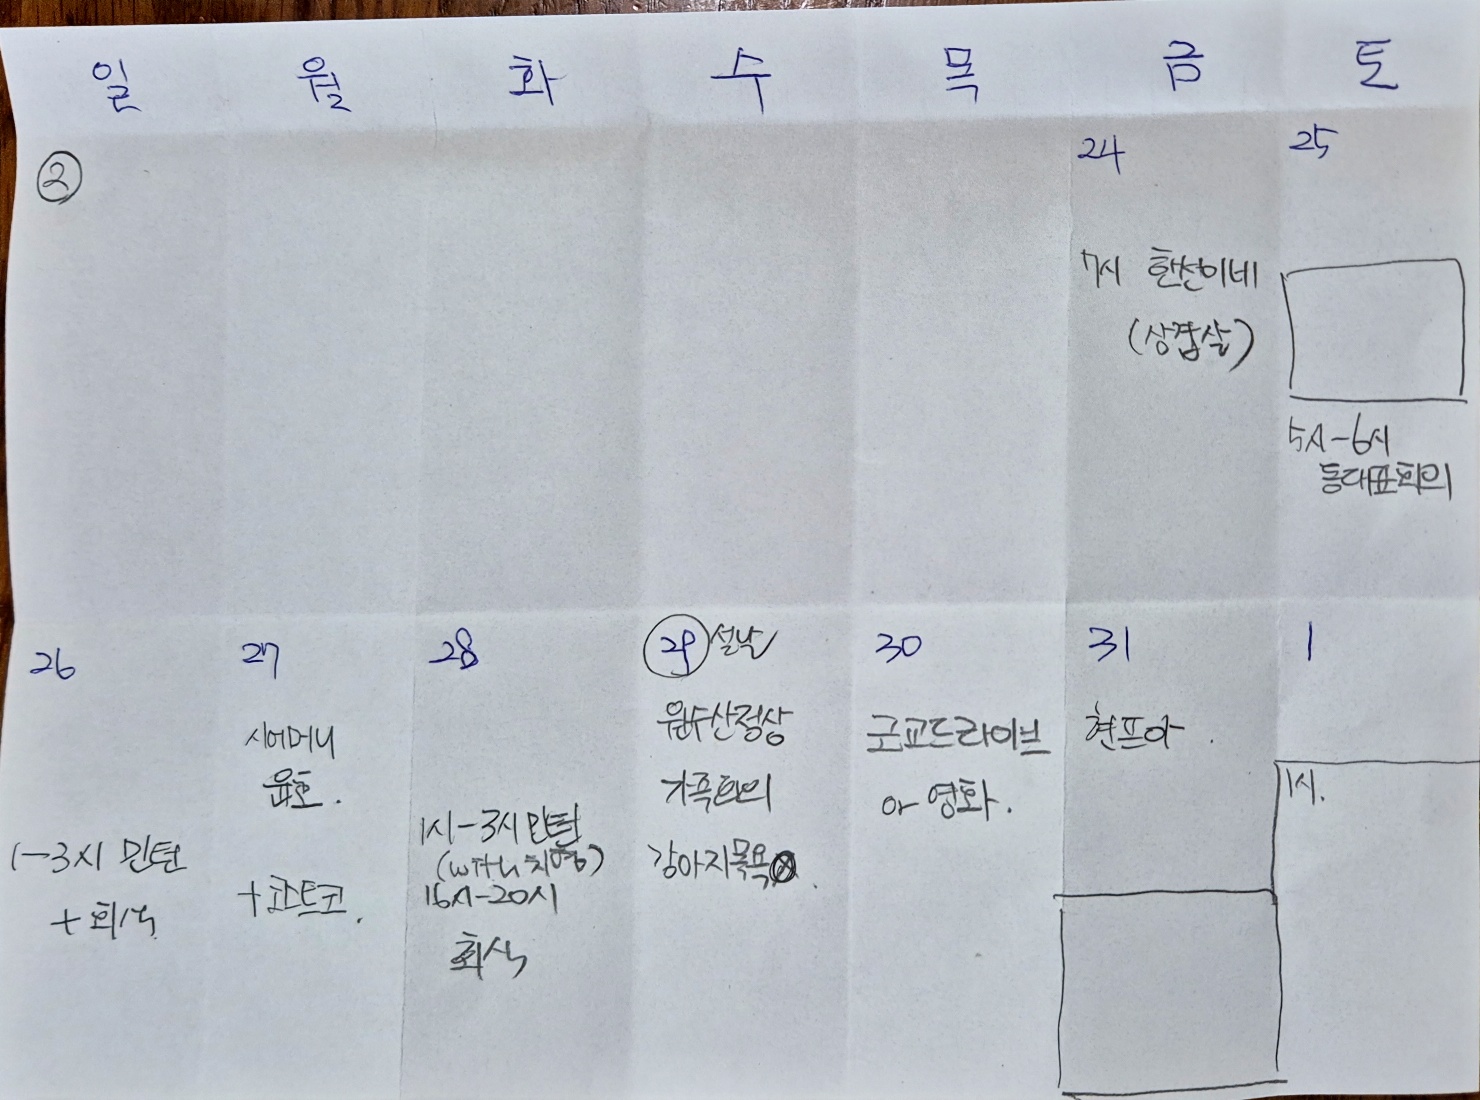 일 월 화 수 목 금 토
②
24 25
7시 현선이네
(상겹살)
5시-6시
동대표회의
26 27 28 29 설날 30 31 1
시어머니
윤호.
+코스트코.
1-3시 민턴
+회식
1시-3시 민턴
(with 치영)
16시-20시
회식
원수산정상
가족회의
강아지목욕
근교드라이브
or 영화.
현프아.
1시.